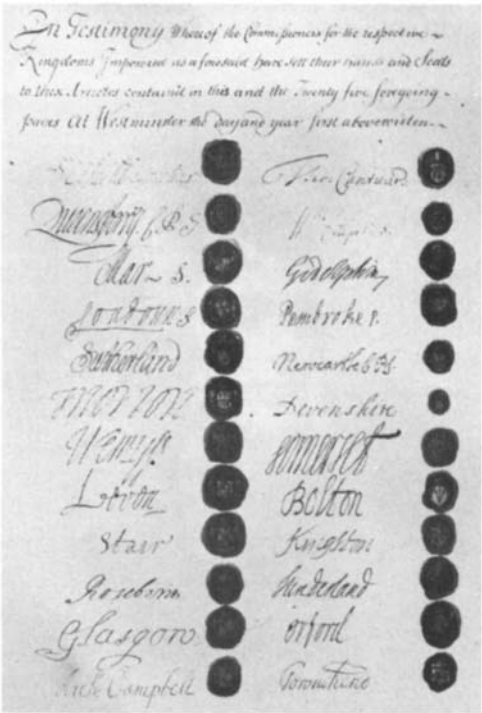 In Testimony Whereof the Commissioners for the respective
Kingdoms Impowred as aforesaid have sett their hands and Seals
to these Articles contain'd in this and the Twenty five foregoing
pages At Westminster the day and year first abovewritten
Queensberry C.P.S
Mar S.
Loudoun S
Sutherland
Morton
Wemyss
Leven
Stair
Rosebery
Glasgow
Arch: Campbell
Tho: Cantuar
Godolphin
Pembroke P.
Newcastle C.P.S.
Devonshire
Somerset
Bolton
Kingston
Sunderland
Orford
Townshend